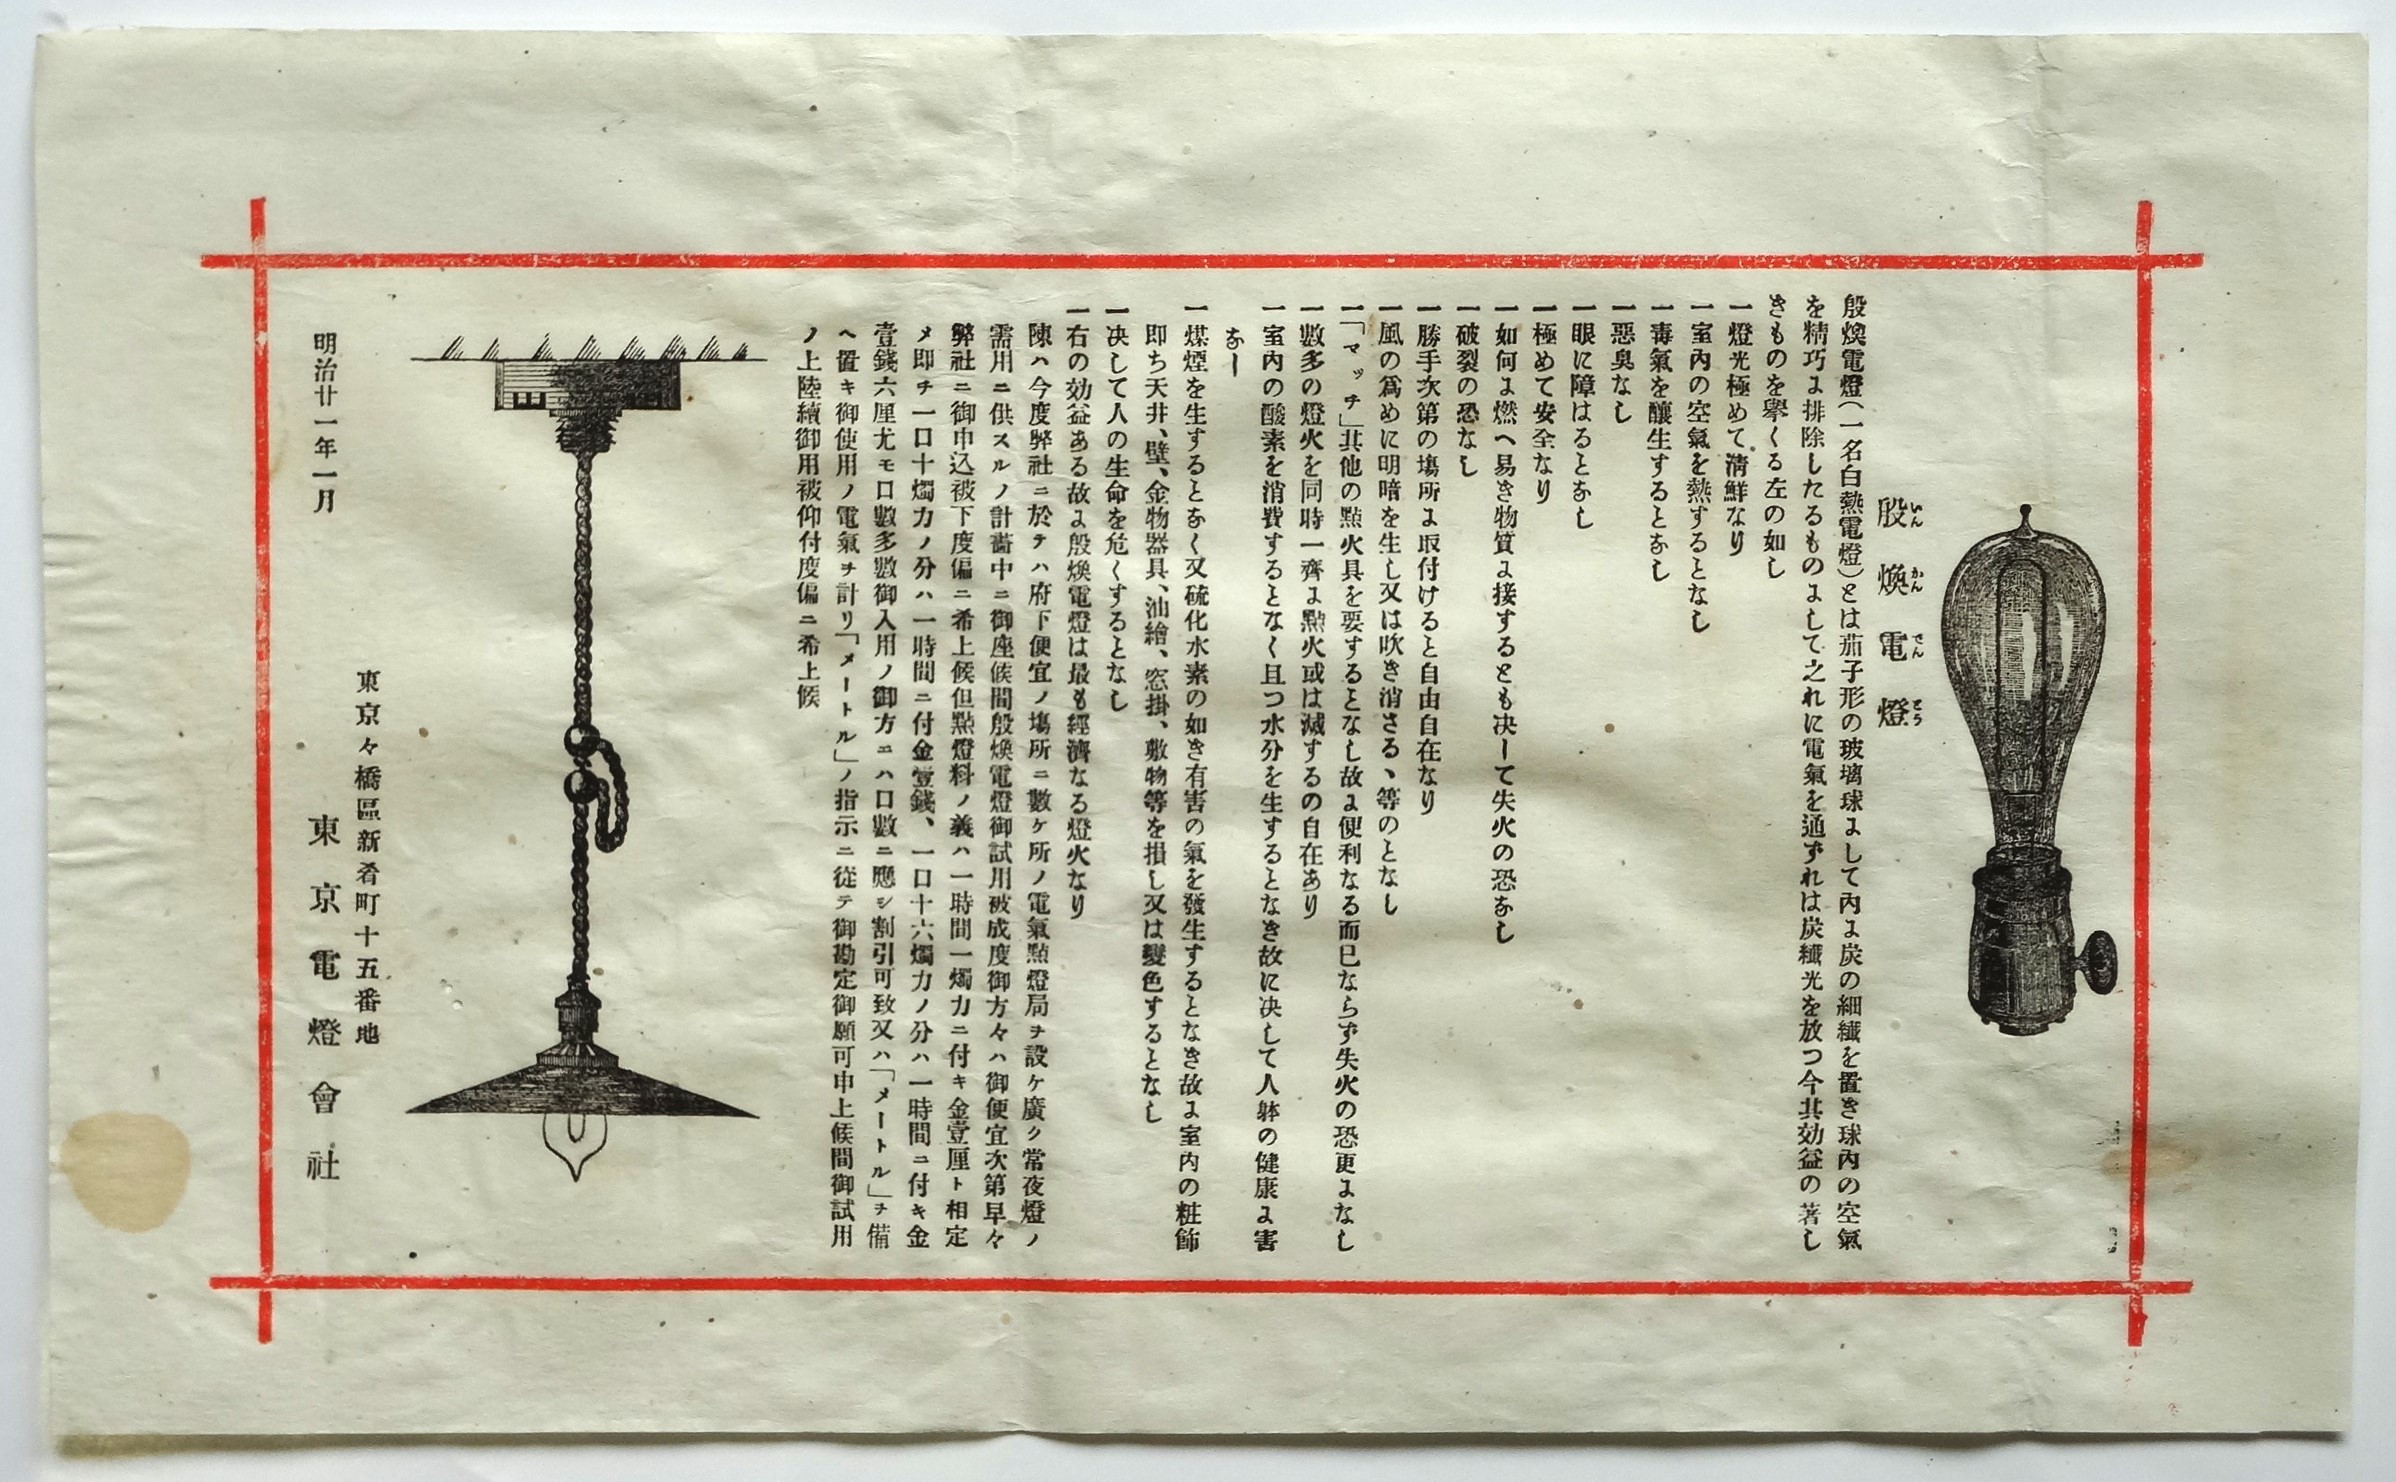 殷煥電燈
いんかんでんとう
殷煥電燈(一名白熱電燈)とは茄子形の玻璃球よして內よ炭の細纎を置き球內の空氣
を精巧よ排除したるものよして之れに電氣を通ずれは炭纎光を放つ今其効益の著し
きものを擧くる左の如し
一燈光極めて淸鮮なり
一室內の空氣を熱するとなし
一毒氣を釀生するとなし
一惡臭なし
一眼に障はるとなし
一極めて安全なり
一如何よ燃へ易き物質よ接するとも决して失火の恐なし
一破裂の恐なし
一勝手次第の塲所よ取付けると自由自在なり
一風の爲めに明暗を生し又は吹き消さるゝ等のとなし
一「マッチ」其他の點火具を要するとなし故よ便利なる而已ならず失火の恐更よなし
一數多の燈火を同時一齊よ點火或は滅するの自在あり
一室內の酸素を消費するとなく且つ水分を生するとなき故に决して人躰の健康よ害
なし
一煤煙を生するとなく又硫化水素の如き有害の氣を發生するとなき故よ室內の粧飾
即ち天井、壁、金物器具、油繪、窓掛、敷物等を損し又は變色するとなし
一决して人の生命を危くするとなし
一右の効益ある故よ殷煥電燈は最も經濟なる燈火なり
陳ハ今度弊社ニ於テハ府下便宜ノ塲所ニ數ケ所ノ電氣點燈局ヲ設ケ廣ク常夜燈ノ
需用ニ供スルノ計畵中ニ御座候間殷煥電燈御試用被成度御方々ハ御便宜次第早々
弊社ニ御申込被下度偏ニ希上候但點燈料ノ義ハ一時間一燭力ニ付キ金壹厘ト相定
メ即チ一口十燭力ノ分ハ一時間ニ付金壹錢、一口十六燭力ノ分ハ一時間ニ付キ金
壹錢六厘尤モ口數多數御入用ノ御方ニハ口數ニ應シ割引可致又ハ「メートル」ヲ備
ヘ置キ御使用ノ電氣ヲ計リ「メートル」ノ指示ニ從テ御勘定御願可申上候間御試用
ノ上陸續御用被仰付度偏ニ希上候
東京々橋區新肴町十五番地
明治廿一年一月
東京電燈會社